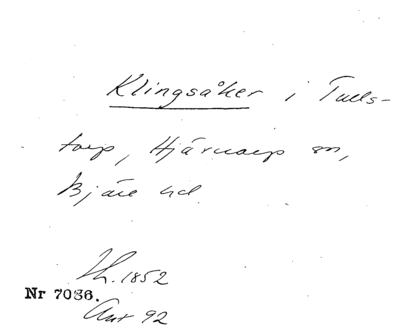 Klingsåker i Tulls-
torp, Hjärnarp sn,
Bjäre hd.
Th. 1852
Nr 7036.
Ant 92